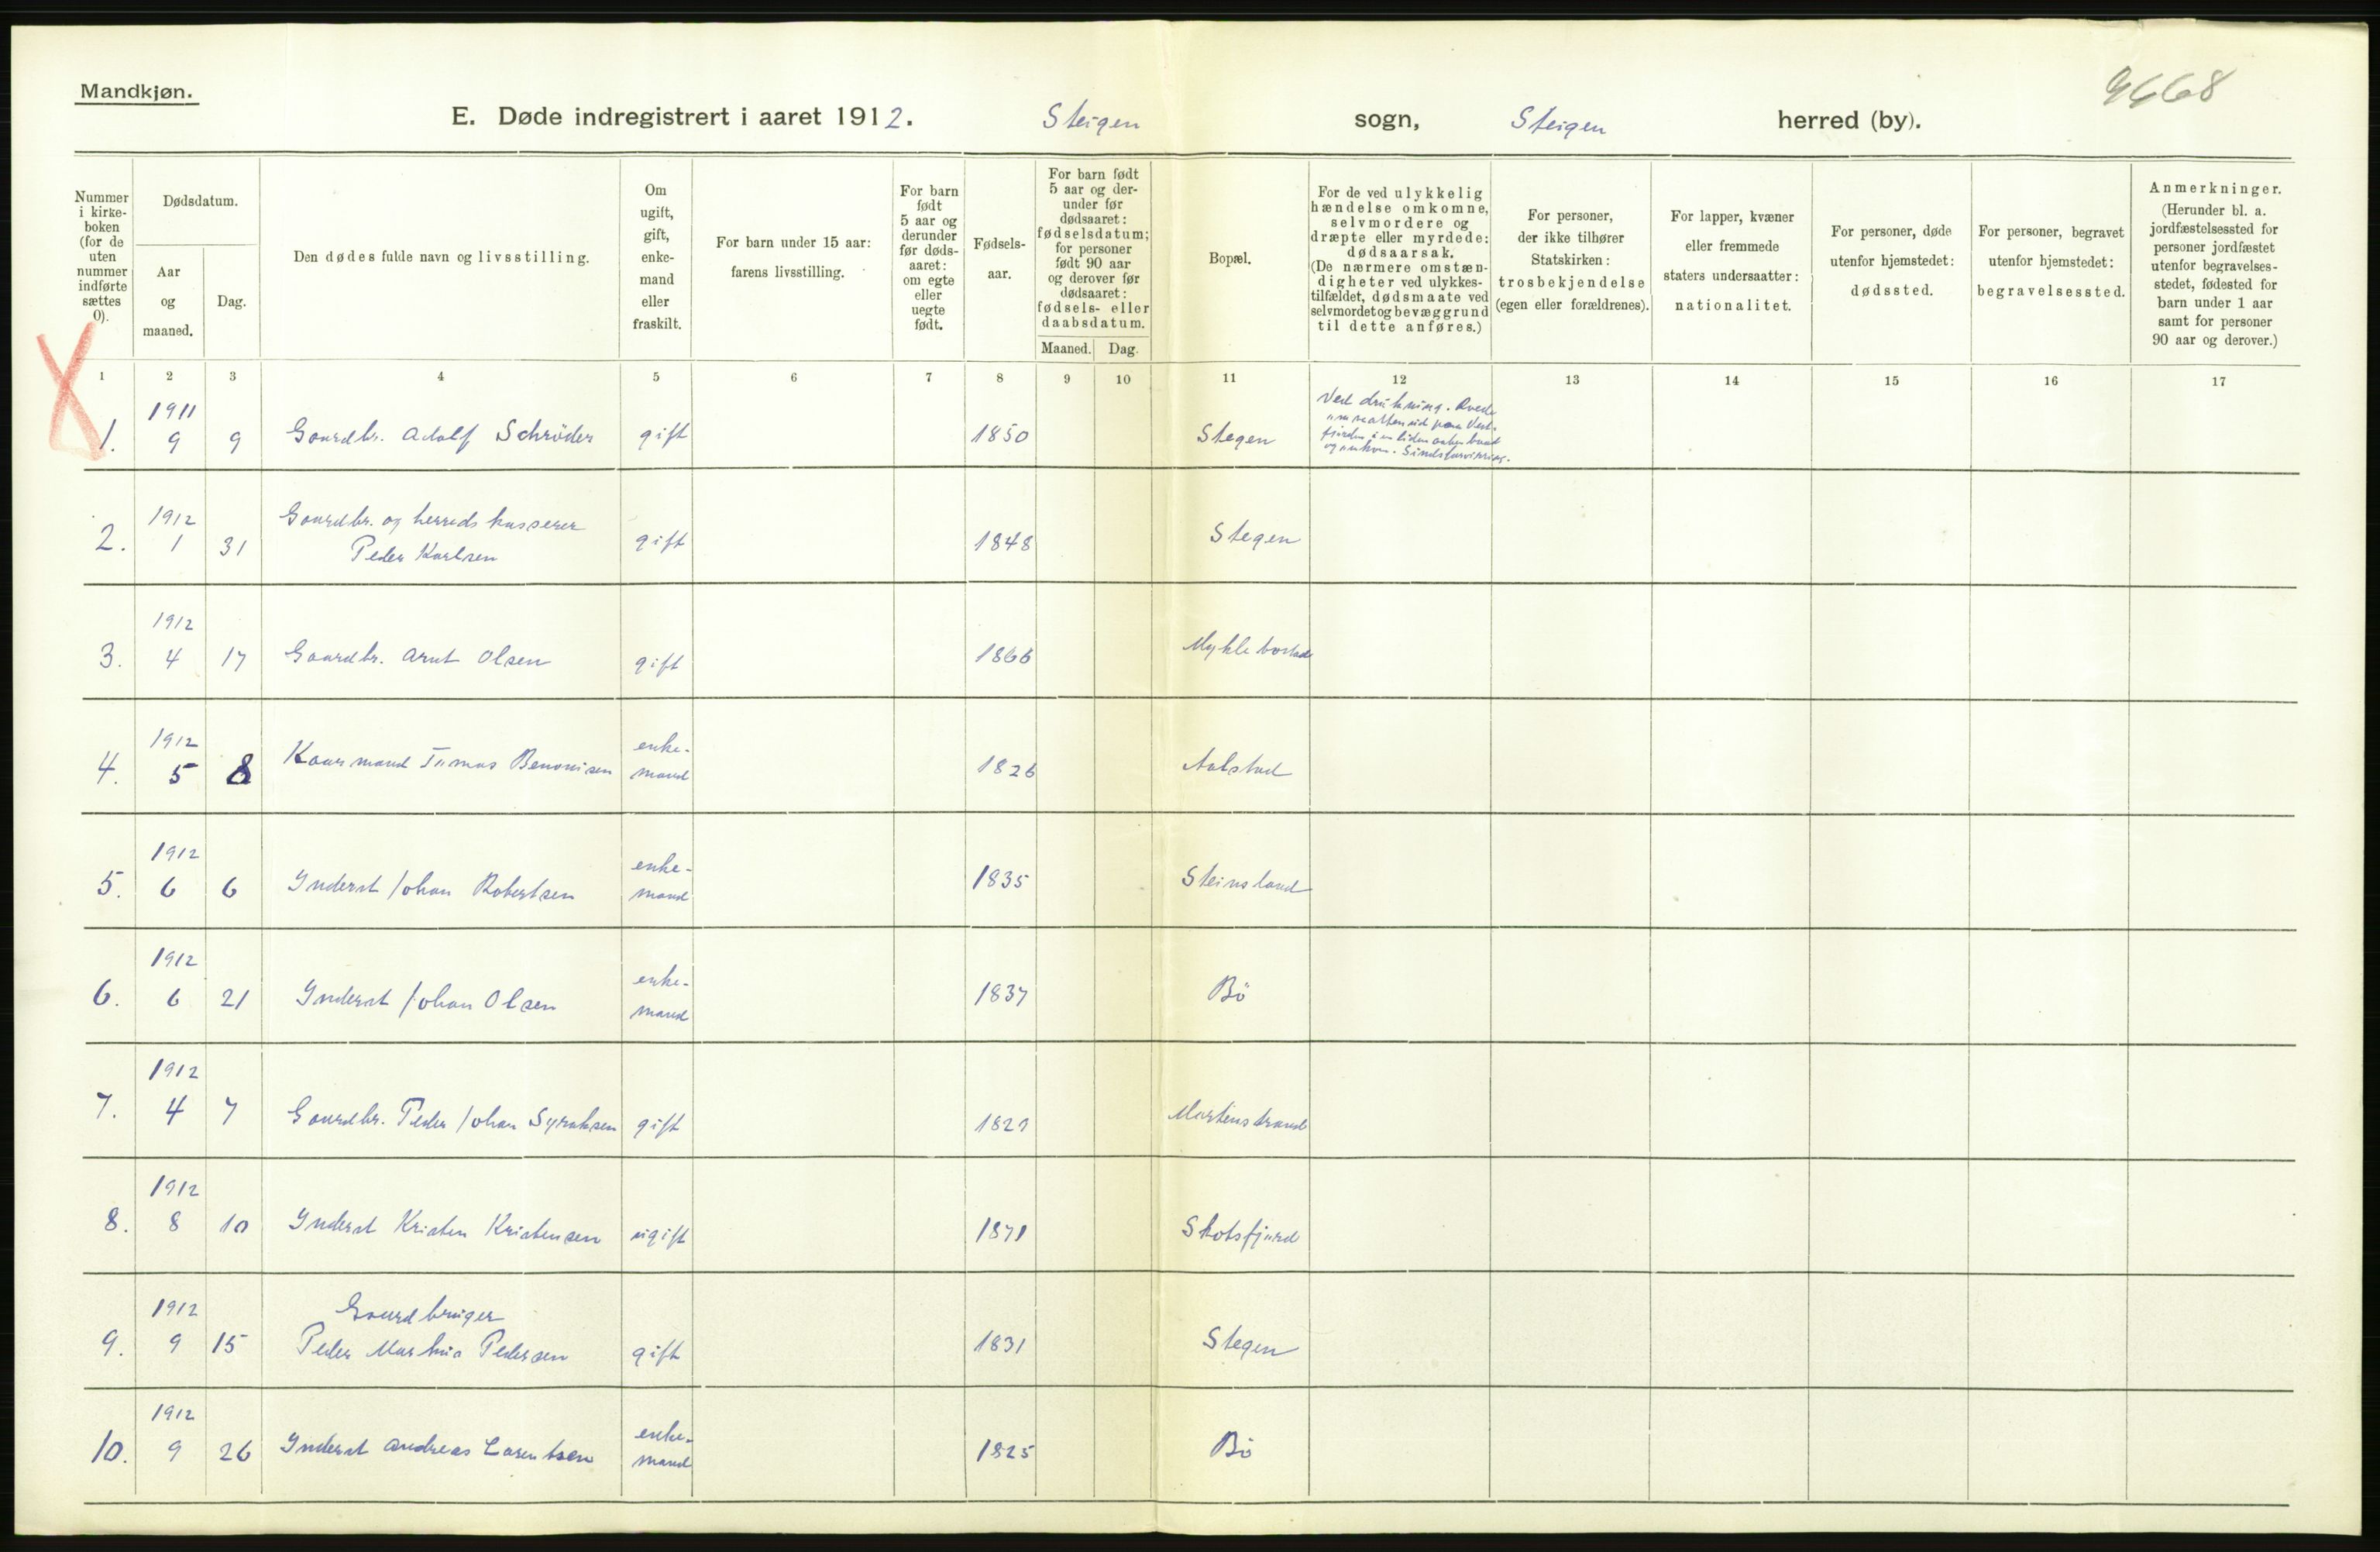 Mandkjøn.
9668
E. Døde indregistrert i aaret 1912. Steigen sogn, Steigen herred (by).
Nummer i kirke- boken (for de uten nummer indførte sættes 0).
Dødsdatum.
Aar og maaned.
Dag.
Den dødes fulde navn og livsstilling.
Om ugift, gift, enke- mand eller fraskilt.
For barn under 15 aar: farens livsstilling.
For barn født 5 aar og derunder før døds- aaret: om egte eller uegte født.
Fødsels- aar.
For barn født 5 aar og der- under før dødsaaret: fødselsdatum; for personer født 90 aar og derover før dødsaaret: fødsels- eller daabsdatum.
Maaned. Dag.
Bopæl.
For de ved ulykkelig hændelse omkomne, selvmordere og dræpte eller myrdede: dødsaarsak. (De nærmere omstæn- digheter ved ulykkes- tilfældet, dødsmaate ved selvmordet og bevæggrund til dette anføres.)
For personer, der ikke tilhører Statskirken: trosbekjendelse (egen eller forældrenes).
For lapper, kvæner eller fremmede staters undersaatter: nationalitet.
For personer, døde utenfor hjemstedet: dødssted.
For personer, begravet utenfor hjemstedet: begravelsessted.
Anmerkninger. (Herunder bl. a. jordfæstelsessted for personer jordfæstet utenfor begravelses- stedet, fødested for barn under 1 aar samt for personer 90 aar og derover.)
1 2 3 4 5 6 7 8 9 10 11 12 13 14 15 16 17
1911
1. 9 9 Gaardbr. Adolf Schröder gift 1850 Stegen
Ved drukning. Roede
om natten ud paa Vest-
fjorden i en liden aaben baad
og omkom. Sindsforvirring.
1912
2. 1 31 Gaardbr. og herredskasserer
Peder Karlsen gift 1848 Stegen
1912
3. 4 17 Gaardbr. Arnt Olsen gift 1866 Myklebostad
1912
4. 5 8 Kaarmand Tomas Benonisen enke-
mand 1826 Aalstad
1912
5. 6 6 Inderst Johan Robertsen enke-
mand 1835 Steinsland
1912
6. 6 21 Inderst Johan Olsen enke-
mand 1837 Bö
1912
7. 4 7 Gaardbr. Peder Johan Syraksen gift 1821 Martinstrand
1912
8. 8 10 Inderst Kristen Kristensen ugift 1871 Skotsfjord
1912
Gaardbruger
9. 9 15 Peder Pedersen gift 1831 Stegen
1912
10. 9 26 Inderst Andreas Lorentsen enke-
mand 1825 Bö